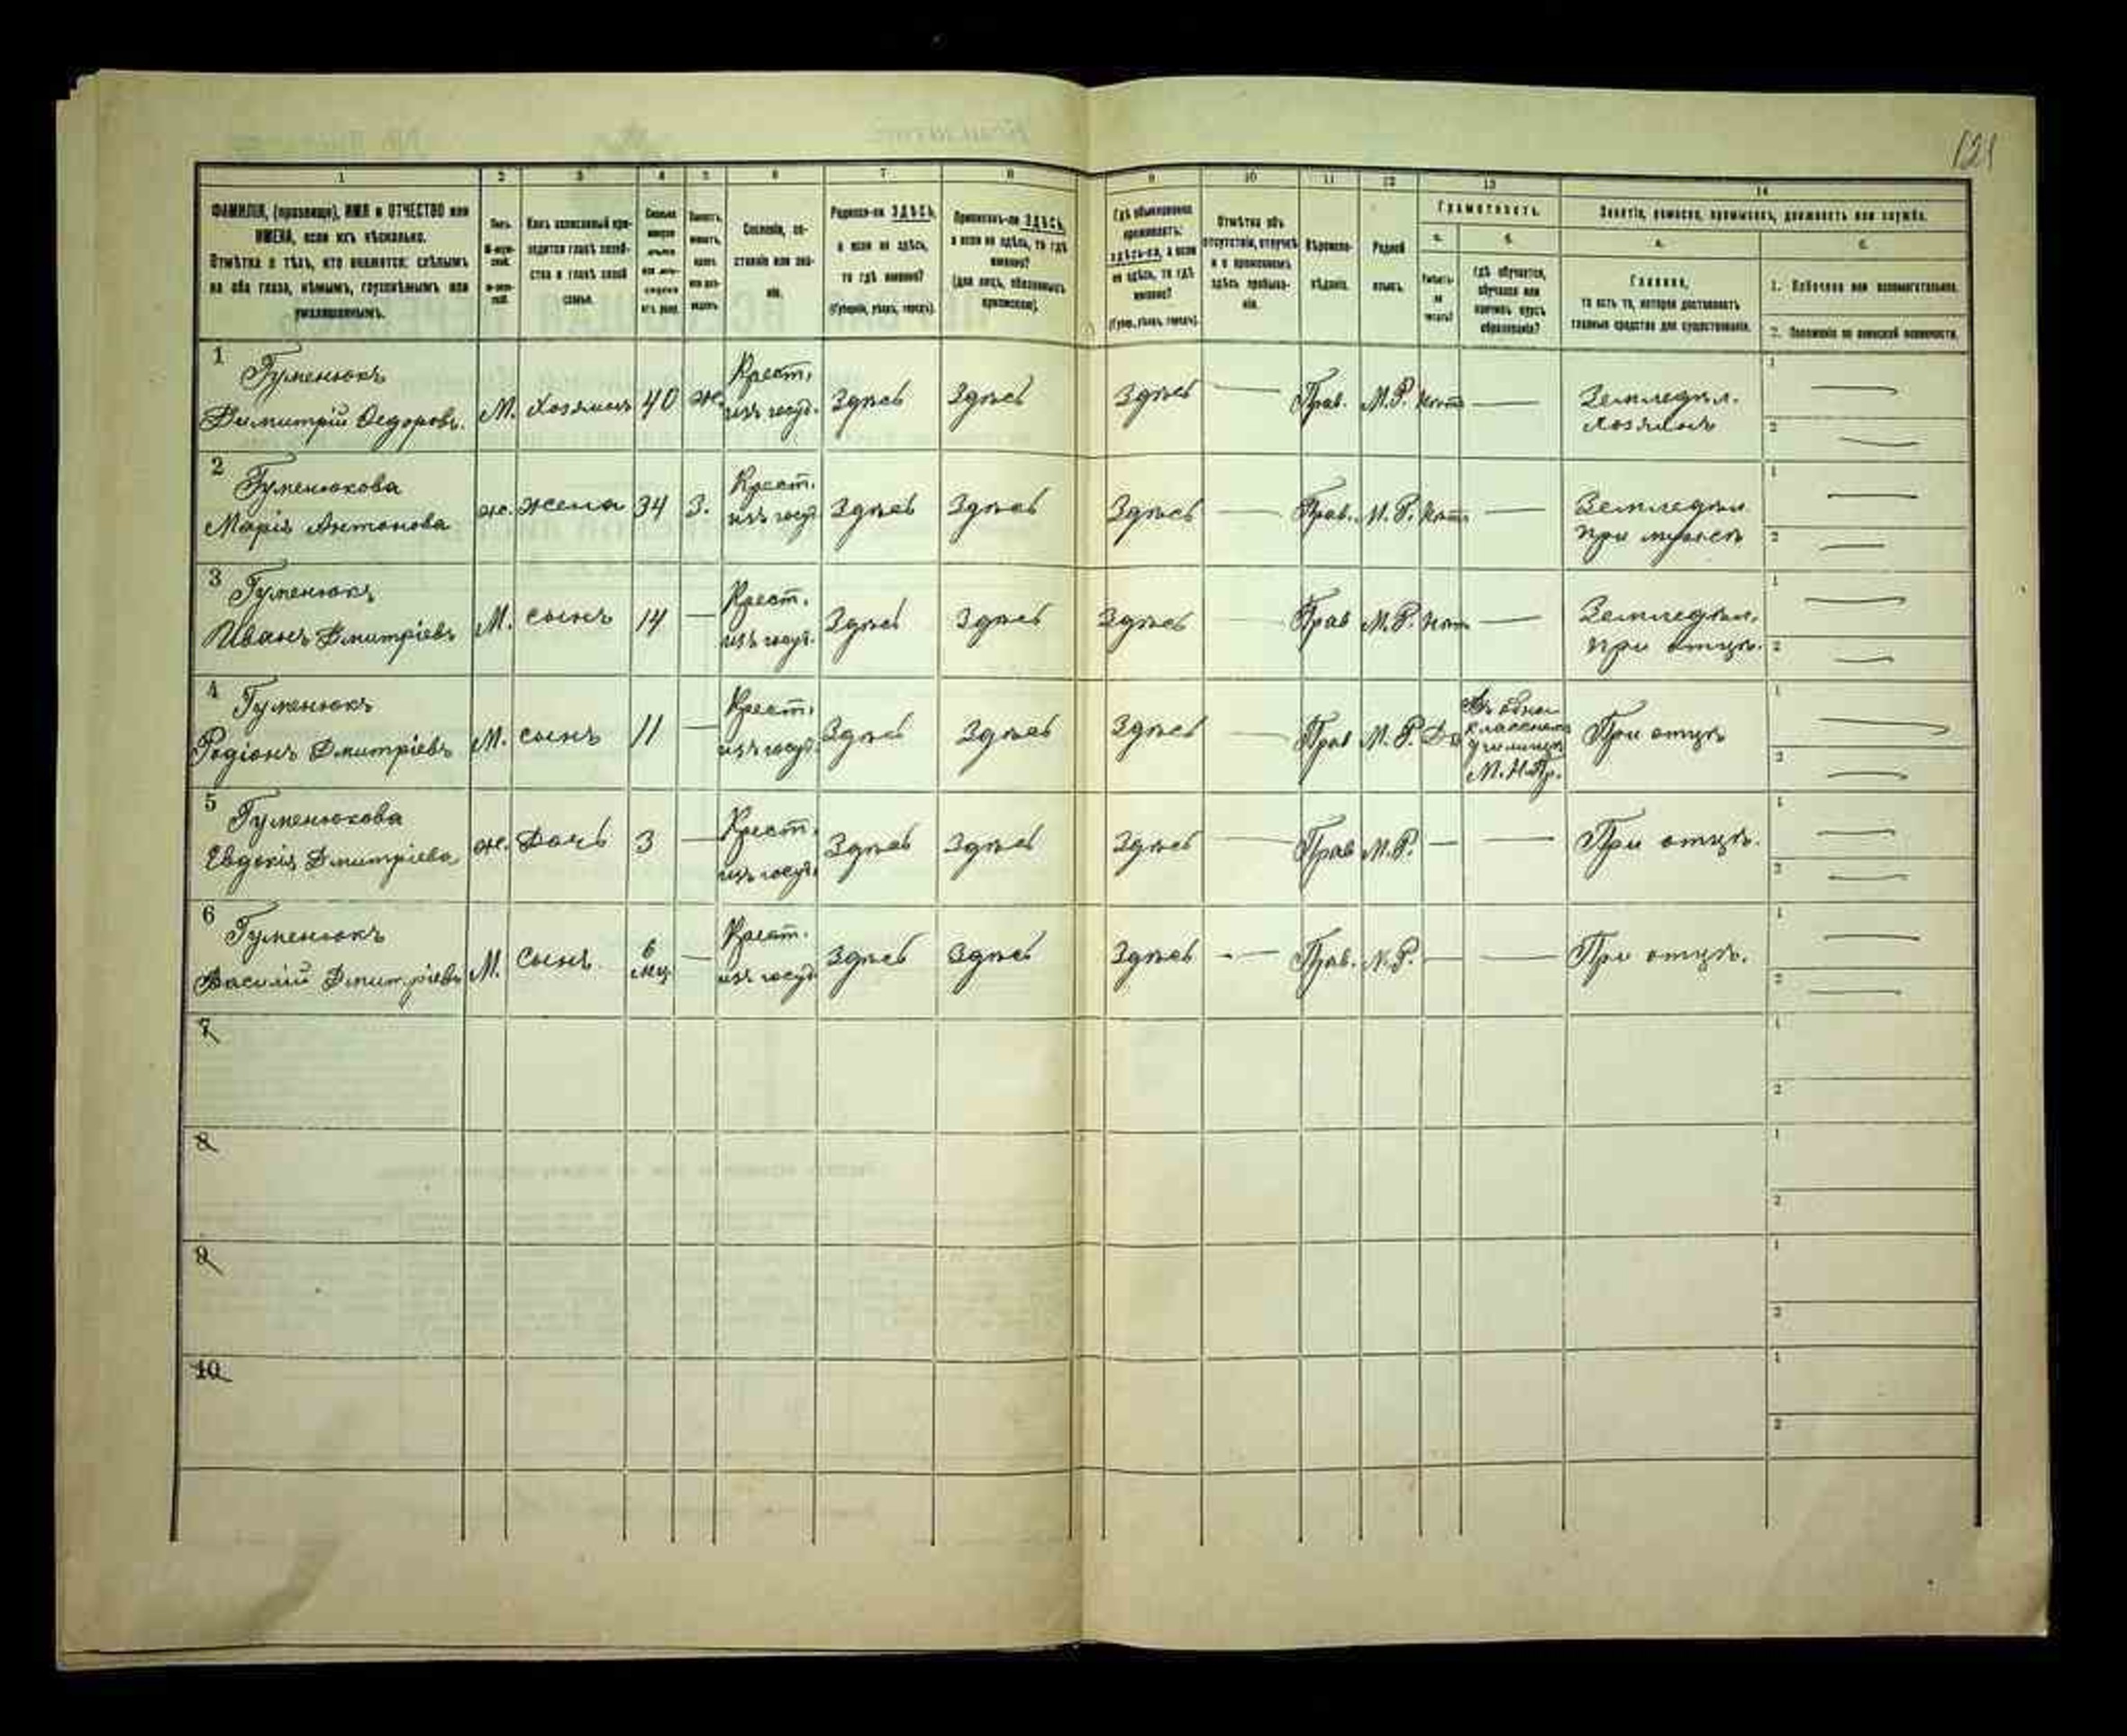 121
1 2 3 4 5 6 7 8 9 10 11 12 13 14
ФАМИЛІЯ, (прозвище), ИМЯ и ОТЧЕСТВО или
ИМЕНА, если ихъ нѣсколько.
Отмѣтка о тѣхъ, кто окажется: слѣпымъ
на оба глаза, нѣмымъ, глухонѣмымъ или
умалишеннымъ.
Полъ.
Какъ записанный при-
ходится главѣ хозяй-
ства и главѣ своей
семьи.
Сословіе, со-
стояніе или зва-
ніе.
Родился-ли ЗДѢСЬ,
а если не здѣсь,
то гдѣ именно?
(Губернія, уѣздъ, городъ).
Приписанъ-ли ЗДѢСЬ,
а если не здѣсь, то гдѣ
именно?
(для лицъ, обязанныхъ
припискою).
Гдѣ обыкновенно
проживаетъ:
здѣсь-ли, а если
не здѣсь, то гдѣ
именно?
(Губер., уѣздъ, городъ).
Отмѣтка объ
отсутствіи, отлучкѣ
и о временномъ
здѣсь пребыва-
ніи.
Вѣроиспо-
вѣданіе.
Родной
языкъ.
Грамотность.
а. б.
Умѣетъ-
ли
читать?
гдѣ обучается,
обучался или
кончилъ курсъ
образованія?
Занятіе, ремесло, промыселъ, должность или служба.
а. б.
Главное,
то есть то, которое доставляетъ
главныя средства для существованія.
1. Побочное или вспомогательное.
2. Положеніе по воинской повинности.
1 Гуменюкъ
Димитрій Ѳедоровъ. М. Хозяинъ 40 ж. Крест. изъ госуд. Здѣсь Здѣсь Здѣсь — Прав. М.Р. Нѣтъ — Земледѣл. хозяинъ 1 — 2 —
2 Гуменюкова
Марія Антонова ж. жена 34 З. Крест. изъ госуд. Здѣсь Здѣсь Здѣсь — Прав. М.Р. Нѣтъ — Земледѣл. при мужѣ 1 — 2 —
3 Гуменюкъ
Иванъ Дмитріевъ М. сынъ 14 — Крест. изъ госуд. Здѣсь Здѣсь Здѣсь — Прав М.Р. Нѣтъ — Земледѣл. при отцѣ. 1 — 2 —
4 Гуменюкъ
Родіонъ Дмитріевъ М. сынъ 11 — Крест. изъ госуд. Здѣсь Здѣсь Здѣсь — Прав М.Р. Да Въ одно классномъ училищѣ М.Н.Пр. При отцѣ 1 — 2 —
5 Гуменюкова
Евдокія Дмитріева ж. Дочь 3 — Крест. изъ госуд. Здѣсь Здѣсь Здѣсь — Прав М.Р. — — При отцѣ. 1 — 2 —
6 Гуменюкъ
Василій Дмитріевъ М. сынъ 6 мц — Крест. изъ госуд. Здѣсь Здѣсь Здѣсь — Прав. М.Р. — — При отцѣ. 1 — 2 —
7 1 2
8 1 2
9 1 2
10 1 2